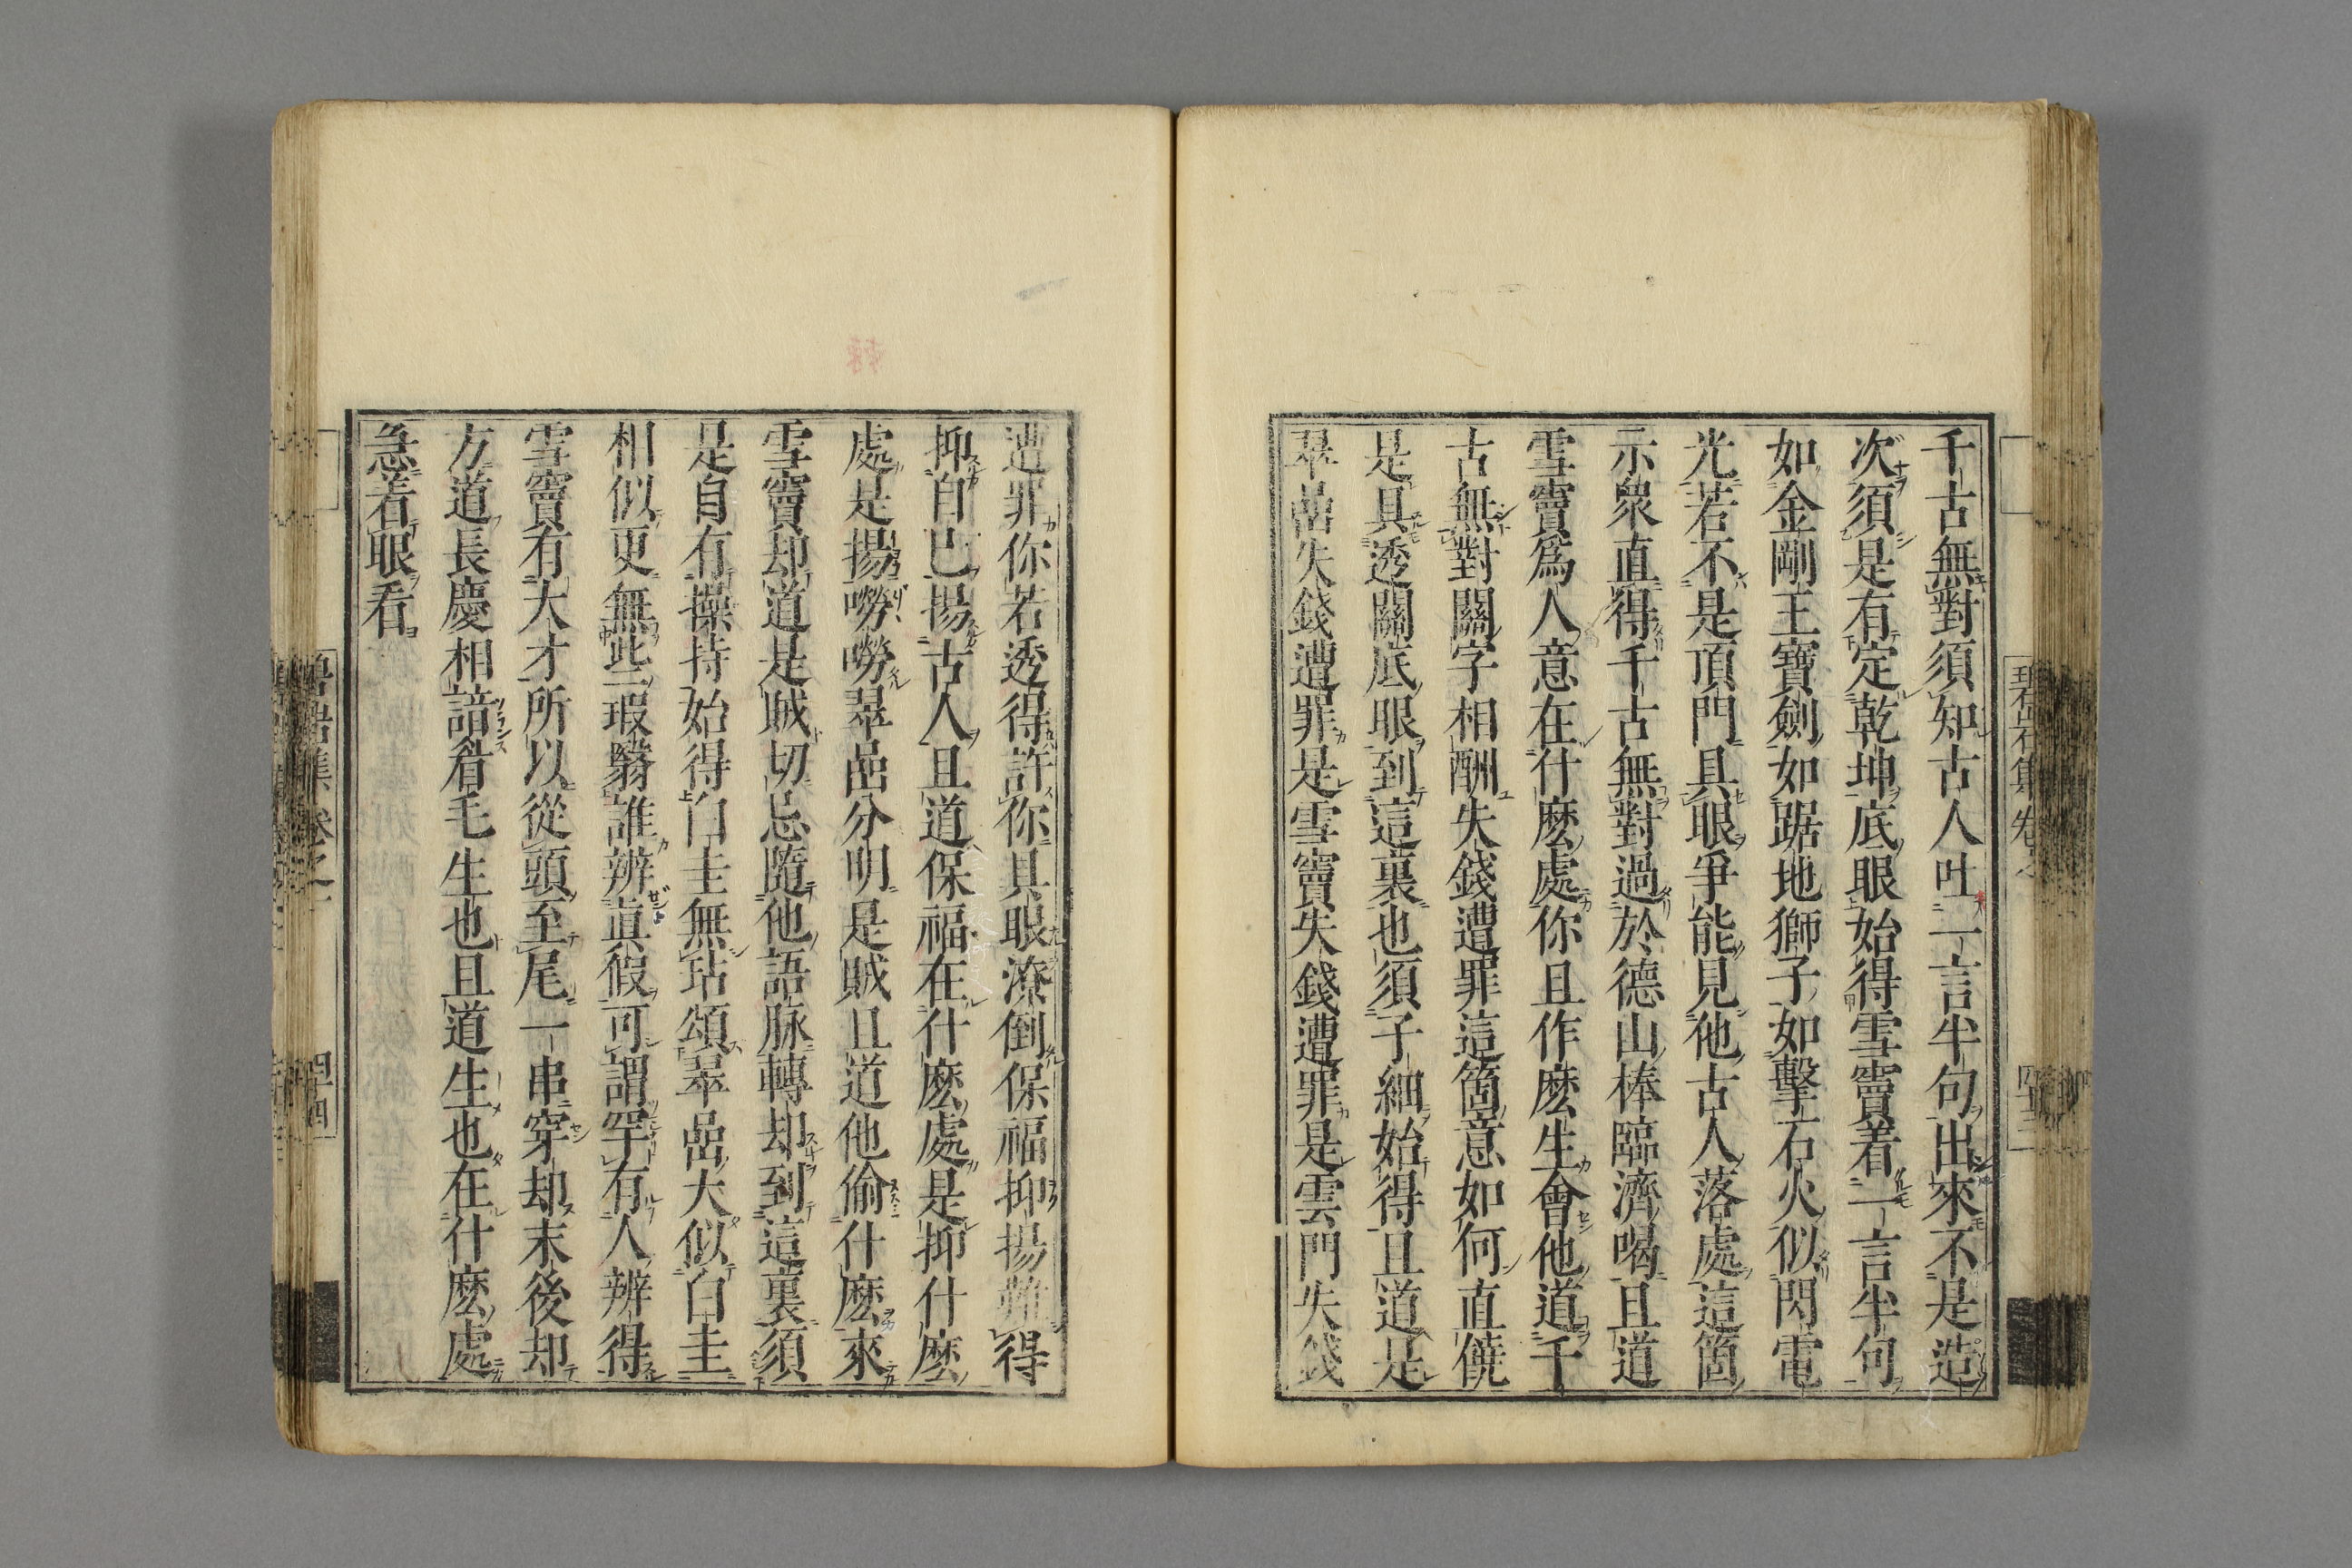 千古無對須知古人吐一言半句出來不是造
次須是有定乾坤底眼始得雪竇着一言半句
如金剛王寶劍如踞地獅子如擊石火似閃電
光若不是頂門具眼爭能見他古人落處這箇
示衆直得千古無對過於德山棒臨濟喝且道
雪竇爲人意在什麽處你且作麽生會他道千
古無對關字相酬失錢遭罪這箇意如何直饒
是具透關底眼到這裏也須子細始得且道是
翠嵓失錢遭罪是雪竇失錢遭罪是雲門失錢
遭罪你若透得許你具眼潦倒保福抑揚難得
抑自己揚古人且道保福在什麽處是抑什麽
處是揚嘮嘮翠嵓分明是賊且道他偷什麽來
雪竇却道是賊切忌隨他語脉轉却到這裏須
是自有操持始得白圭無玷頌翠嵓大似白圭
相似更無些瑕翳誰辨眞假可謂罕有人辨得
雪竇有大才所以從頭至尾一串穿却末後却
方道長慶相諳眉毛生也且道生也在什麽處
急着眼看